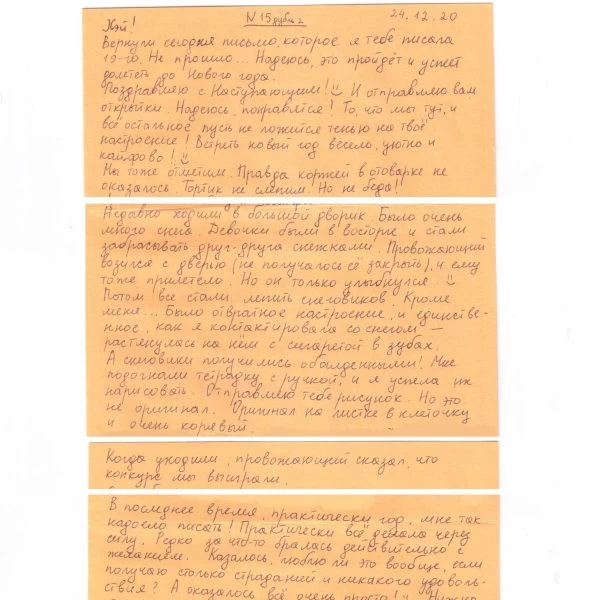 N 15 дубль 2
24.12.20
Хэй!
Вернули сегодня письмо, которое я тебе писала
19-го. Не прошло... Надеюсь, это пройдёт и успеет
долететь до Нового года.
Поздравляю с Наступающим! И отправляю вам
открытки. Надеюсь, понравятся! То, что мы тут, и
всё остальное пусть не ложится тенью на твоё
настроение! Встреть новый год весело, уютно и
кайфово!
Мы тоже отметим. Правда коржей в отоварке не
оказалось. Тортик не слепим. Но не беда!
Недавно ходили в большой дворик. Было очень
много снега. Девочки были в восторге и стали
забрасывать друг-друга снежками. Провожающий
возился с дверью (не получалось её закрыть), и ему
тоже прилетело. Но он только улыбнулся.
Потом все стали лепить снеговиков. Кроме
меня... Было отвратное настроение, и единствен-
ное, как я контактировала со снегом —
растянулась на нём с сигаретой в зубах.
А снеговики получились обалденными! Мне
подогнали тетрадку с ручкой, и я успела их
нарисовать. Отправляю тебе рисунок. Но это
не оригинал. Оригинал на листке в клеточку
и очень корявый.
Когда уходили, провожающий сказал, что
конкурс мы выиграли.
В последнее время, практически год, мне так
надоело писать! Практически всё делала через
силу. Редко за что-то бралась действительно с
желанием. Казалось, люблю ли это вообще, если
получаю столько страданий и никакого удоволь-
ствия? А оказалось всё очень просто! Нужно